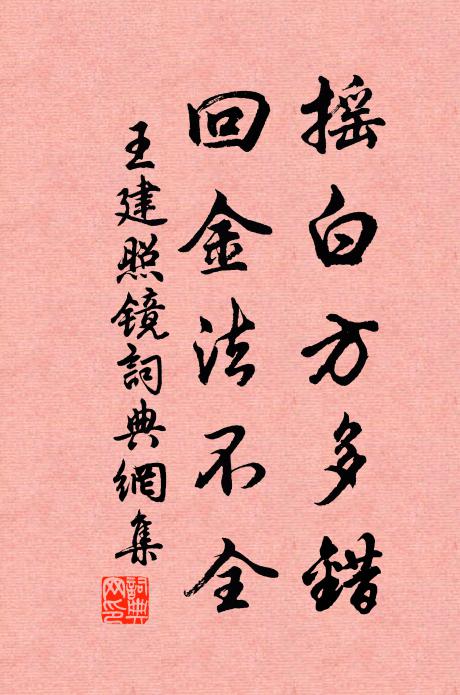 摇白方多錯
回金法不全
王建照镜詞典網集
詞典網印